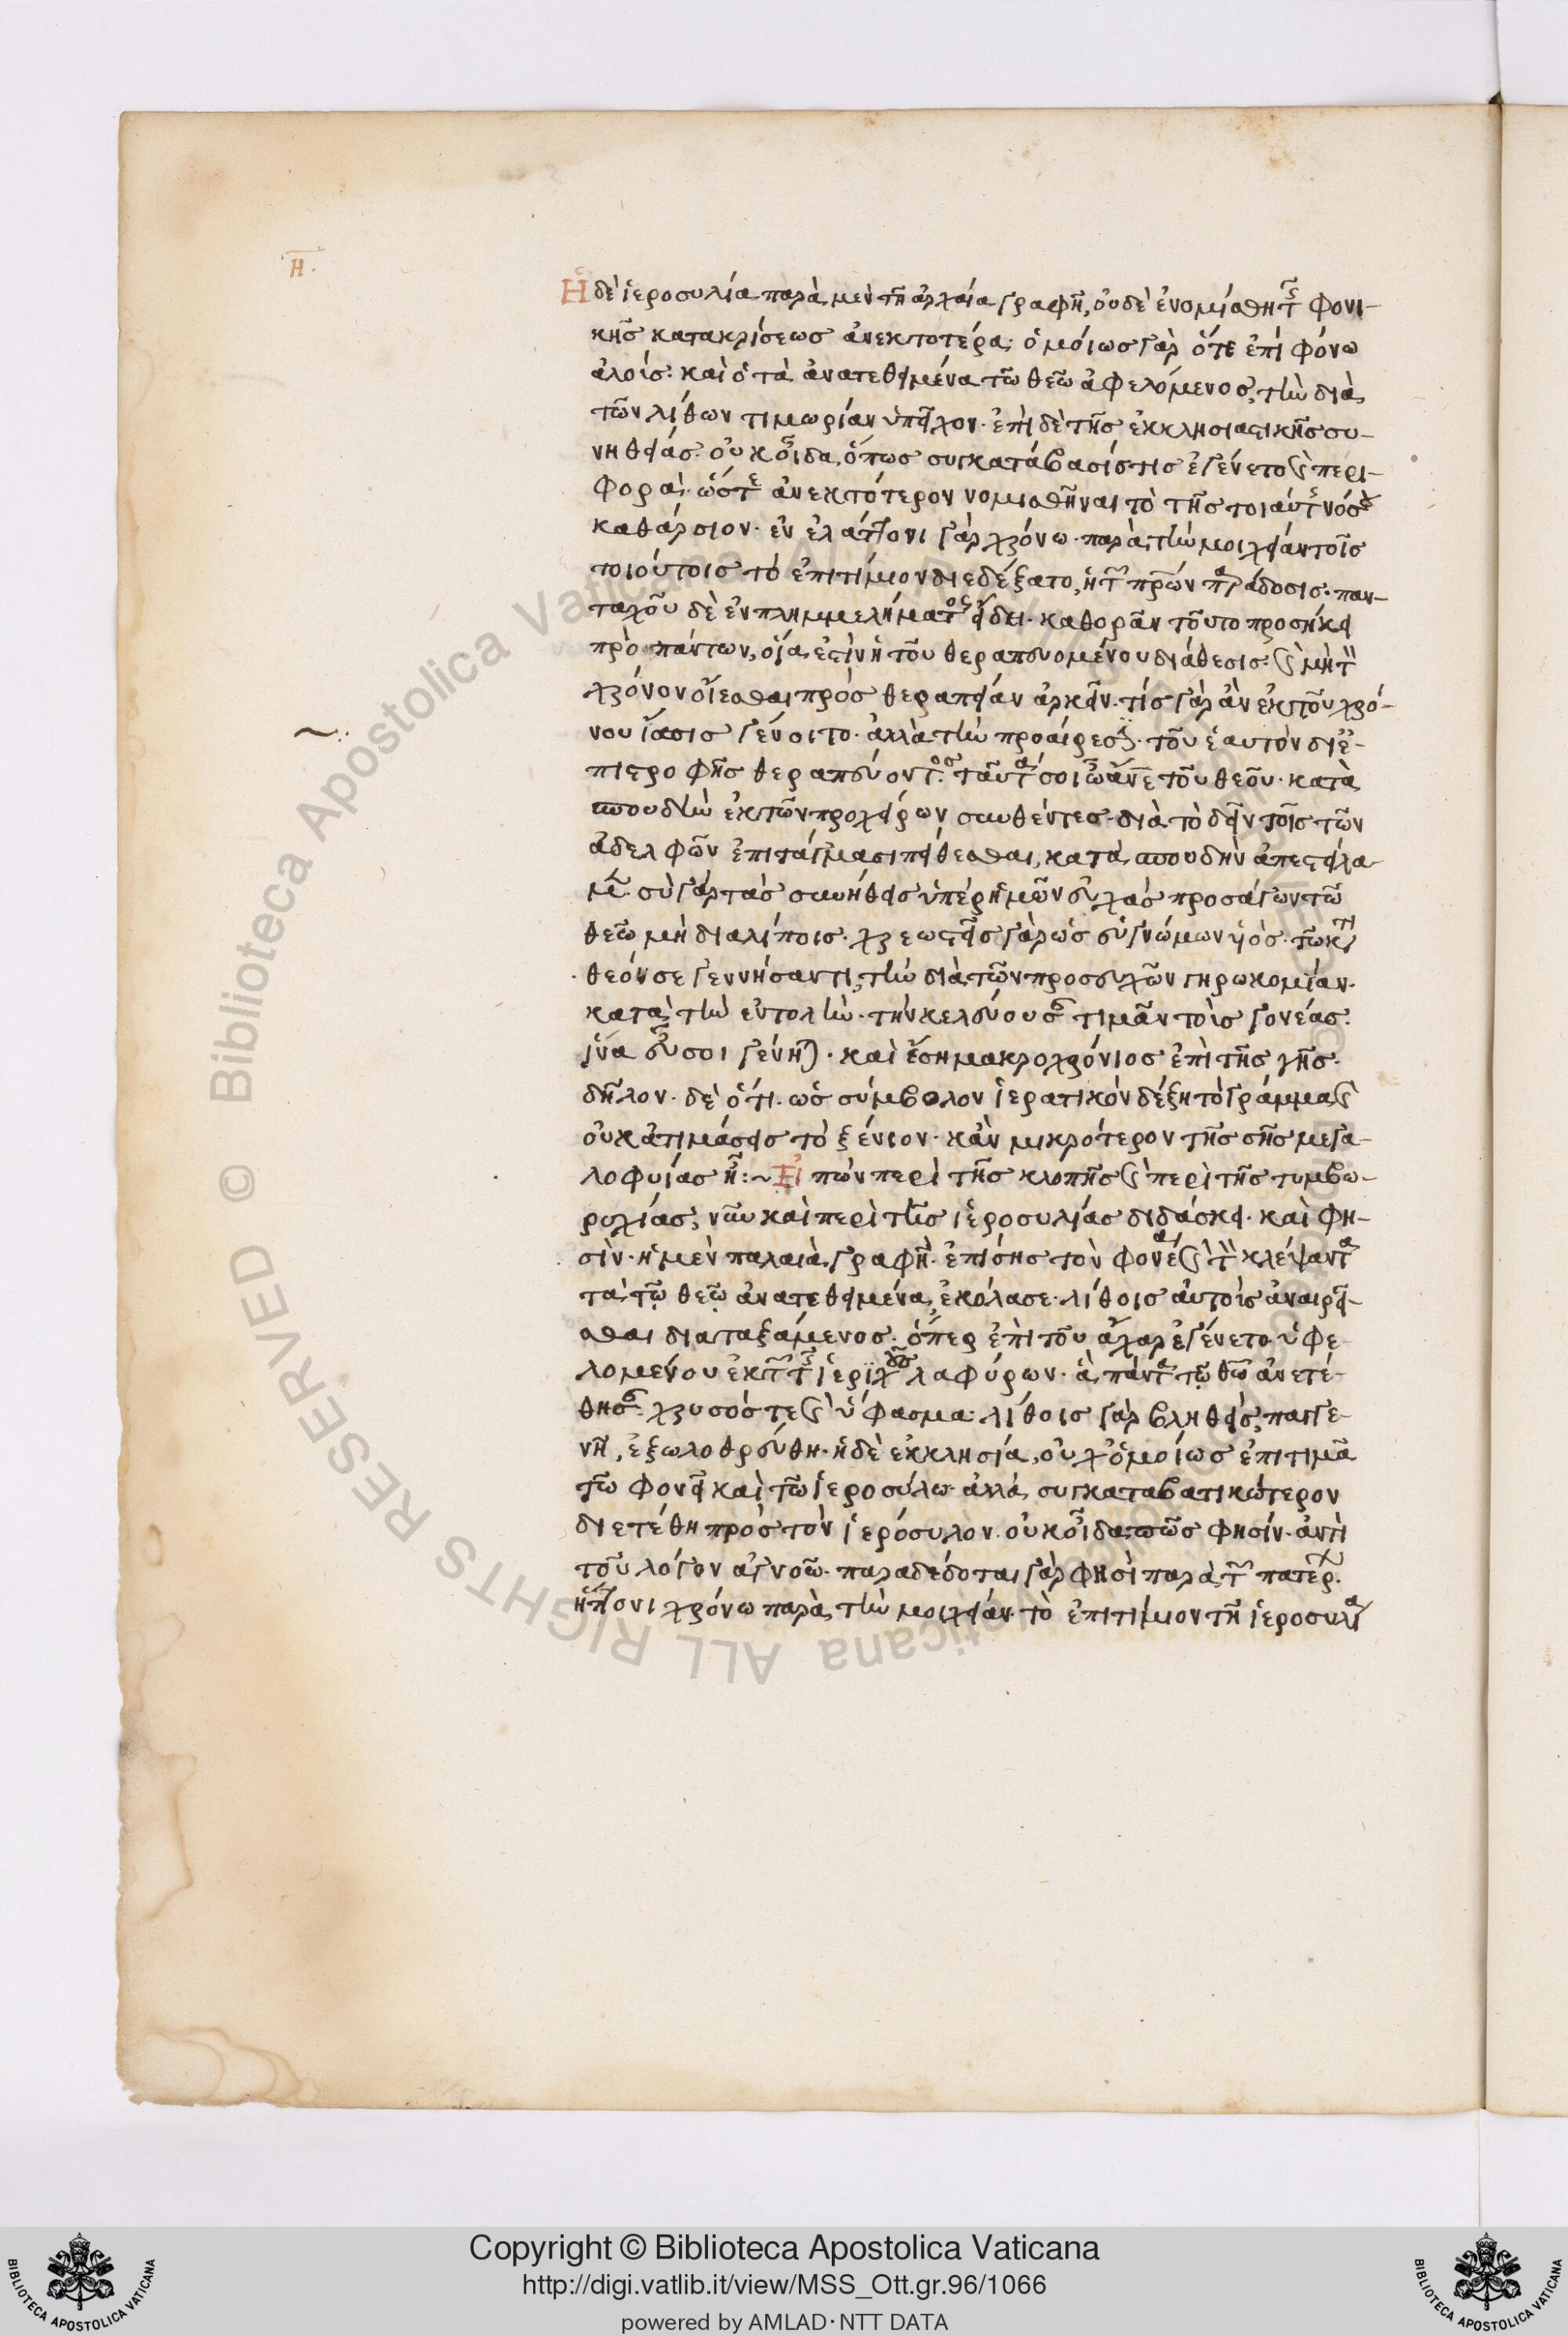 η.
Ἡ δὲ ἱεροσυλία παρὰ μὲν τῆ ἀρχαία γραφῆ, οὐδὲ ἐνομίσθη τῆς φονι-
κῆς κατακρίσεως ἀνεκτοτέρα· ὁμοίως γὰρ ὅτε ἐπὶ φόνω
ἁλοίς· καὶ ὁ τὰ ἀνατεθειμένα τῶ θεῶ ἀφελόμενος, τὴν διὰ
τῶν λίθων τιμωρίαν ὑπεῖχον· ἐπὶ δὲ τῆς ἐκκλησιαστικῆς συ-
νηθείας· οὐκ οἶδα, ὅπως συγκατάβασίς τις ἐγένετο καὶ περι-
φορὰ· ὥστε ἀνεκτότερον νομισθῆναι τὸ τῆς τοιαύτης νόσου
καθάρσιον· ἐν ἐλάττονι γὰρ χρόνω παρὰ τὴν μοιχείαν τοῖς
τοιούτοις τὸ ἐπιτίμιον διεδέξατο, ἡ τῶν πρῶν παράδοσις· παν-
ταχοῦ δὲ ἐν πλημμελήματος εἴδει· καθορᾶν τοῦτο προσήκει
πρὸ πάντων, οἵα ἐστὶν ἡ τοῦ θεραπευομένου διάθεσις· καὶ μὴ τὸν
χρόνον οἴεσθαι πρὸς θεραπείαν ἀρκεῖν· τίς γὰρ ἂν ἐκ τοῦ χρό-
νου ἴασις γένοιτο· ἀλλὰ τὴν προαίρεσιν τοῦ ἑαυτὸν δι' ἐ-
πιστροφῆς θεραπεύοντος. ταῦτά σοι ὦ ἄνε τοῦ θεοῦ· κατὰ
σπουδὴν ἐκ τῶν προχείρων συνθέντες διὰ τὸ δεῖν τοῖς τῶν
ἀδελφῶν ἐπιτάγμασι πείθεσθαι, κατὰ σπουδὴν ἀπεστείλα-
μεν· σὺ γὰρ τὰς συνήθεις ὑπὲρ ἡμῶν εὐχὰς προσάγων τῶ
θεῶ μὴ διαλίποις· χρεωστεῖς γὰρ ὡς εὐγνώμων υἱός· τῶ κατὰ
θεόν σε γεννήσαντι, τὴν διὰ τῶν προσευχῶν γηρωκομίαν·
κατὰ τὴν ἐντολὴν τὴν κελεύουσαν τιμᾶν τοὺς γονέας·
ἵνα εὖ σοι γένηται· καὶ ἔση μακροχρόνιος ἐπὶ τῆς γῆς·
δῆλον δὲ ὅτι ὡς σύμβολον ἱερατικὸν δέξη τὸ γράμμα καὶ
οὐκ ἀτιμάσεις τὸ ξένιον· κἂν μικρότερον τῆς σῆς μεγα-
λοφυίας ἦ:~ Εἰπὼν περὶ τῆς κλοπῆς καὶ περὶ τῆς τυμβω-
ρυχίας, νῦν καὶ περὶ τῆς ἱεροσυλίας διδάσκει· καὶ φη-
σὶν· ἡ μὲν παλαιὰ γραφὴ· ἐπίσης τὸν φονέα καὶ τὸν κλέψαντα
τὰ τῷ θεῷ ἀνατεθειμένα, ἐκόλασε λίθοις αὐτοὺς ἀναιρεῖ-
σθαι διαταξάμενος· ὅπερ ἐπὶ τοῦ ἄχαρ ἐγένετο ὑφε-
λομένου ἐκ τῶν τῆς ἱεριχοῦς λαφύρων· ἃ πάντα τῷ θῶ ἀνετέ-
θησαν· χρυσός τε καὶ ὕφασμα· λίθοις γὰρ βληθεὶς, παγγε-
νῆ, ἐξωλοθρεύθη· ἡ δὲ ἐκκλησία, οὐχ ὁμοίως ἐπιτιμᾶ
τῶ φονεῖ καὶ τῶ ἱεροσύλω· ἀλλὰ συγκαταβατικώτερον
διετέθη πρὸς τὸν ἱερόσυλον· οὐκ οἶδα πῶς φησίν· ἀντὶ
τοῦ λόγον ἀγνοῶ· παραδέδοται γάρ φησὶ παρὰ τῶν πατέρων
ἥττονι χρόνω παρὰ τὴν μοιχείαν τὸ ἐπιτίμιον τῆ ἱεροσυλία
Copyright © Biblioteca Apostolica Vaticana
http://digi.vatlib.it/view/MSS_Ott.gr.96/1066
powered by AMLAD·NTT DATA
BIBLIOTECA APOSTOLICA VATICANA
BIBLIOTECA APOSTOLICA VATICANA
© Biblioteca Apostolica Vaticana ALL RIGHTS RESERVED